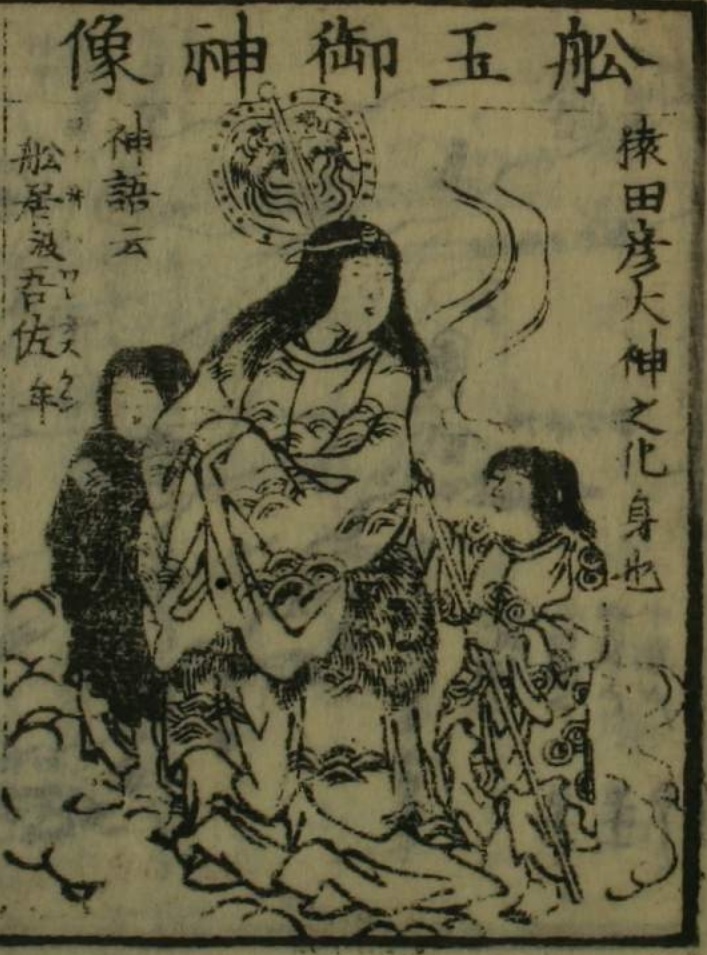 舩玉御神像
猿田彦大神之化身也
神語云
舩居波吾佐年